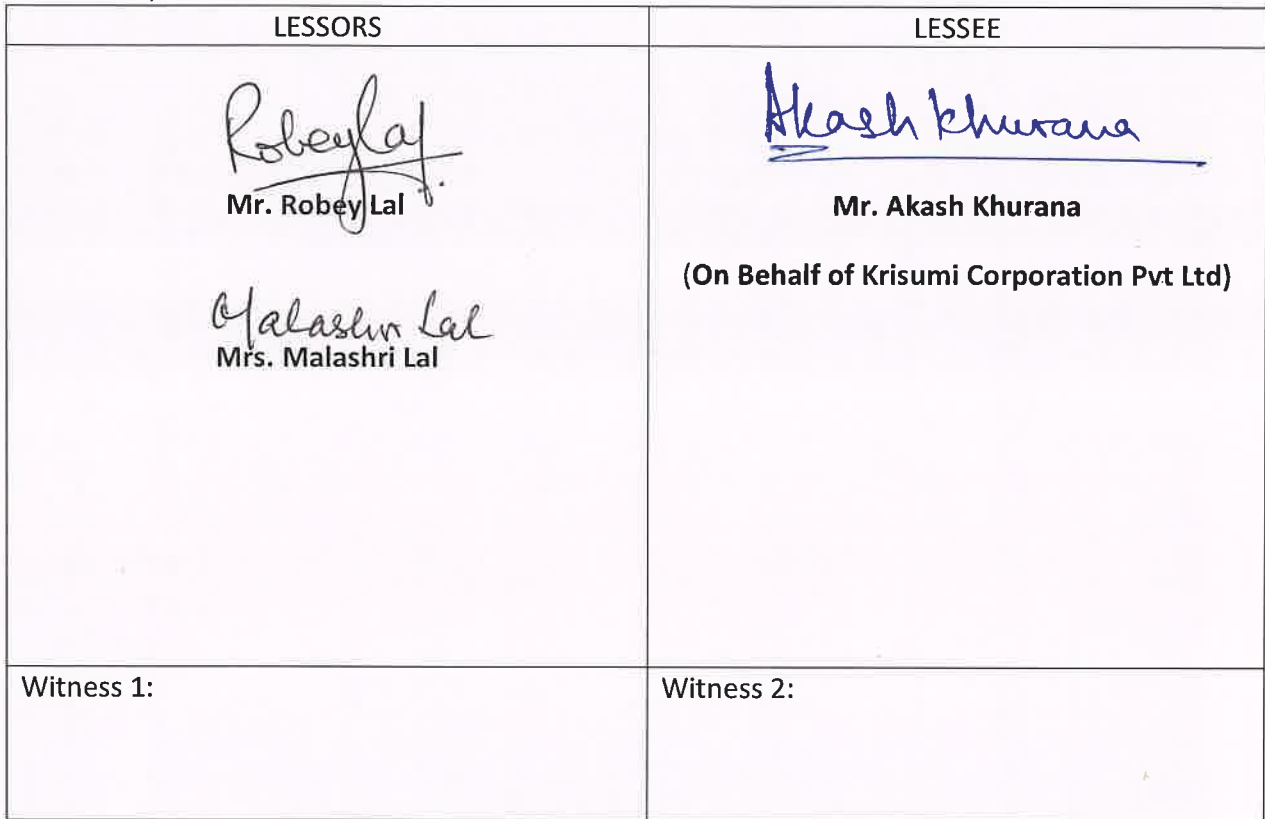 LESSORS
LESSEE
Robey Lal
Mr. Robey Lal
Malashri Lal
Mrs. Malashri Lal
Akash Khurana
Mr. Akash Khurana
(On Behalf of Krisumi Corporation Pvt Ltd)
Witness 1:
Witness 2: